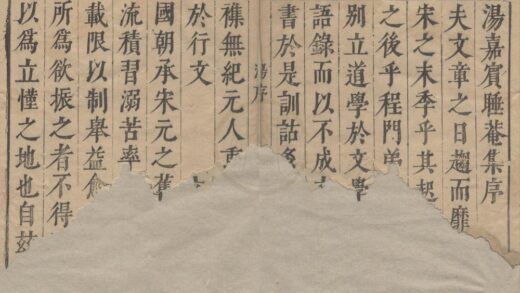 湯嘉賓睡菴集序
夫文章之日趨而靡
宋之末季乎其起
之後乎程門
別立道學於文學
語錄而以不成
書於是訓詁
湯序
襍無紀元人
於行文
國朝承宋元之舊
流積習溺苦率
載限以制舉益
所爲欲振之者不得
以爲立懂之地也自茲